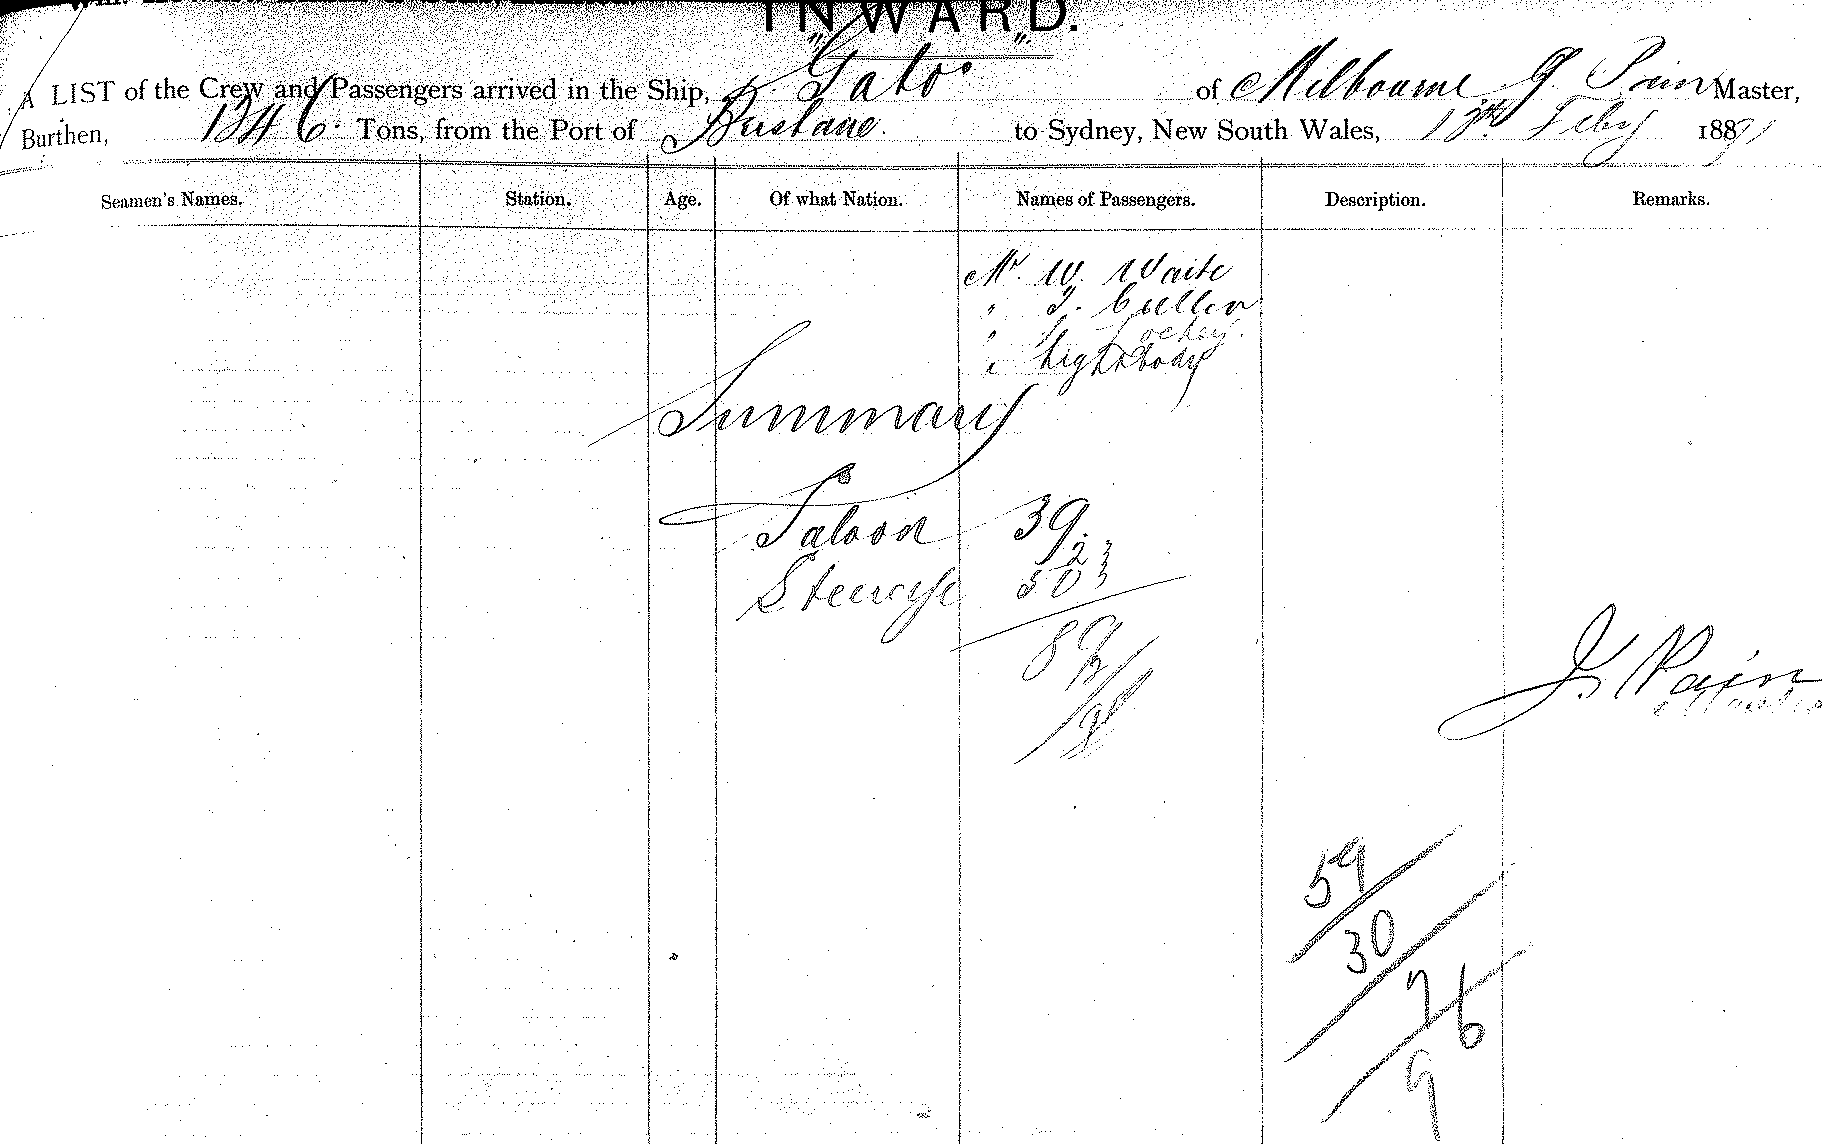 INWARD.
A LIST of the Crew and Passengers arrived in the Ship, of Melbourne Master,
Burthen, Tons, from the Port of Brisbane to Sydney, New South Wales, 13th Feby 1891
Seamen's Names. Station. Age. Of what Nation. Names of Passengers. Description. Remarks.
Mr. W. Waite
" J. Cullen
" Lightbody
Summary
Saloon 39
Steerage 50
89
J Pain
Master
59
30
76
9